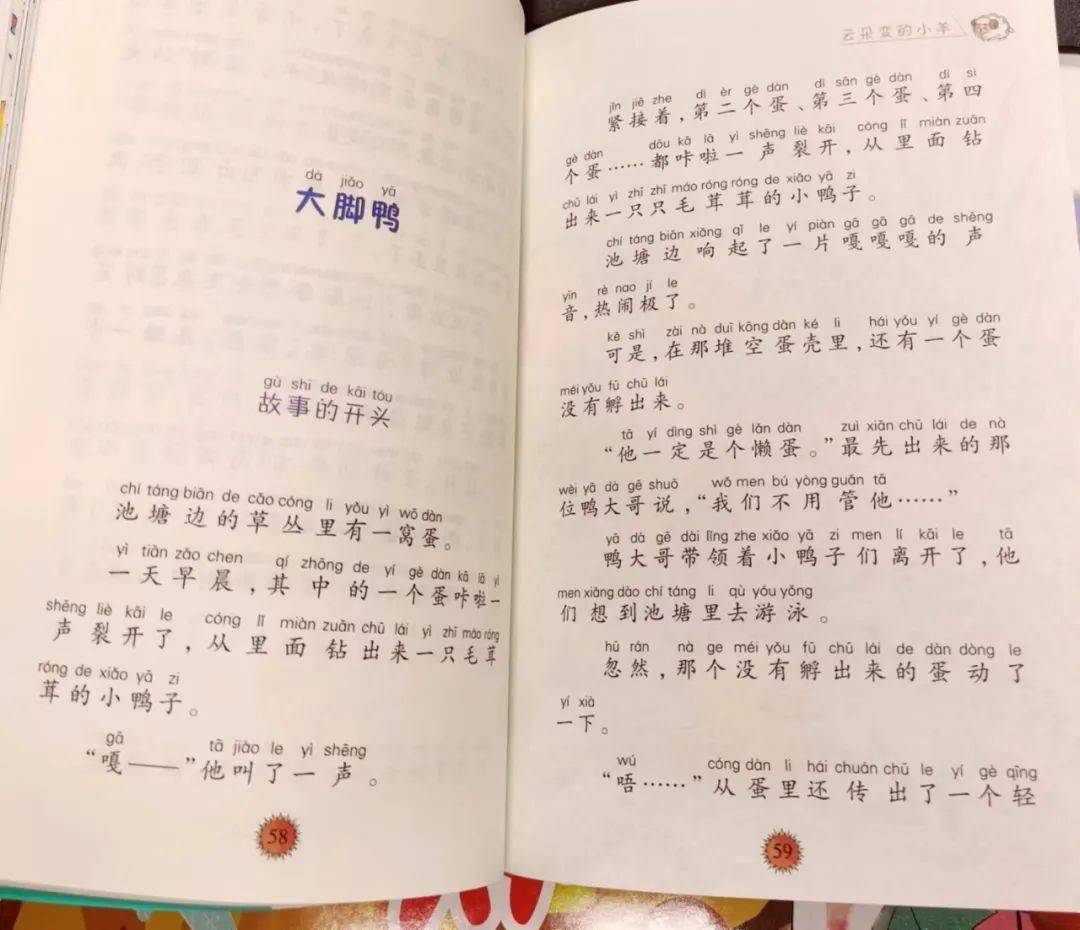 dà jiǎo yā
大脚鸭
gù shi de kāi tóu
故事的开头
chí táng biān de cǎo cóng li yǒu yì wō dàn
池塘边的草丛里有一窝蛋。
yì tiān zǎo chen qí zhōng de yí gè dàn kā lā yì
一天早晨,其中的一个蛋咔啦一
shēng liè kāi le cóng lǐ miàn zuān chū lái yì zhī máo róng
声裂开了,从里面钻出来一只毛茸
róng de xiǎo yā zi
茸的小鸭子。
gā tā jiào le yì shēng
“嘎——”他叫了一声。
58
云朵变的小羊
jǐn jiē zhe dì èr gè dàn dì sān gè dàn dì sì
紧接着,第二个蛋、第三个蛋、第四
gè dàn dōu kā lā yì shēng liè kāi cóng lǐ miàn zuān
个蛋……都咔啦一声裂开,从里面钻
chū lái yì zhī zhī máo róng róng de xiǎo yā zi
出来一只只毛茸茸的小鸭子。
chí táng biān xiǎng qǐ le yí piàn gā gā gā de shēng
池塘边响起了一片嘎嘎嘎的声
yīn rè nao jí le
音,热闹极了。
kě shì zài nà duī kōng dàn ké li hái yǒu yí gè dàn
可是,在那堆空蛋壳里,还有一个蛋
méi yǒu fū chū lái
没有孵出来。
tā yí dìng shì gè lǎn dàn zuì xiān chū lái de nà
“他一定是个懒蛋。”最先出来的那
wèi yā dà gē shuō wǒ men bú yòng guǎn tā
位鸭大哥说,“我们不用管他……”
yā dà gē dài lǐng zhe xiǎo yā zi men lí kāi le tā
鸭大哥带领着小鸭子们离开了,他
men xiǎng dào chí táng li qù yóu yǒng
们想到池塘里去游泳。
hū rán nà ge méi yǒu fū chū lái de dàn dòng le
忽然,那个没有孵出来的蛋动了
yí xià
一下。
wú cóng dàn li hái chuán chū le yí gè qīng
“唔……”从蛋里还传出了一个轻
59